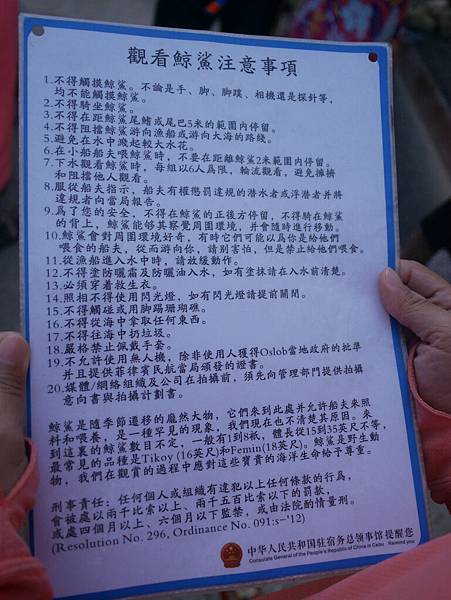 觀看鯨鯊注意事項
1.不得觸摸鯨鯊。不論是手、脚、脚蹼、相機還是探針等,
均不能觸摸鯨鯊。
2.不得騎坐鯨鯊。
3.不得在距鯨鯊尾鰭或尾巴5米的範圍内停留。
4.不得阻擋鯨鯊游向漁船或游向大海的路綫。
5.避免在水中濺起較大水花。
6.在小船船夫喂鯨鯊時,不要在距離鯨鯊2米範圍内停留。
7.下水觀看鯨鯊時,每組以6人爲限,輪流觀看,避免擁擠
和阻擋他人觀看。
8.服從船夫指示,船夫有權懲罰違規的潜水者或浮潜者并將
違規者向當局報告。
9.爲了您的安全,不得在鯨鯊的正後方停留,不得騎在鯨鯊
的背上,鯨鯊能够其察覺周圍環境,并會隨時進行移動。
10.鯨鯊會對周圍環境好奇,有時它們可能以爲你是給他們
喂食的船夫,從而游向你,請别害怕,但是禁止給他們喂食。
11.從漁船進入水中時,請放緩動作。
12.不得塗防曬霜及防曬油入水,如有塗抹請在入水前清楚。
13.必須穿着救生衣。
14.照相不得使用閃光燈,如有閃光燈請提前關閉。
15.不得觸碰或用脚踢珊瑚礁。
16.不得從海中拿取任何東西。
17.不得往海中扔垃圾。
18.嚴格禁止佩戴手套。
19.不允許使用無人機,除非使用人獲得Oslob當地政府的批準
并且提供菲律賓民航當局頒發的證書。
20.媒體/網絡組織及公司在拍攝前,須先向管理部門提供拍攝
意向書與拍攝計劃書。
鯨鯊是隨季節遷移的龐然大物,它們來到此處并允許船夫來照
料和喂養,是一種罕見的現象,我們現在也不清楚其原因。來
到這裏的鯨鯊數目不定,一般有1到8祇,體長從15到35英尺不等,
最常見的品種是Tikoy (16英尺)和Femin(18英尺)。鯨鯊是野生動
物,我們在觀賞的過程中應對這些寶貴的海洋生命給予尊重。
刑事責任:任何個人或組織有違犯以上任何條款的行爲,
會被處以兩千比索以上、兩千五百比索以下的罰款,
或處四個月以上、六個月以下監禁,或由法院酌情量刑。
(Resolution No. 296, Ordinance No. 091:s-'12)
中华人民共和国驻宿务总领事馆提醒您
Consulate General of the People's Republic of China in Cebu Remind you